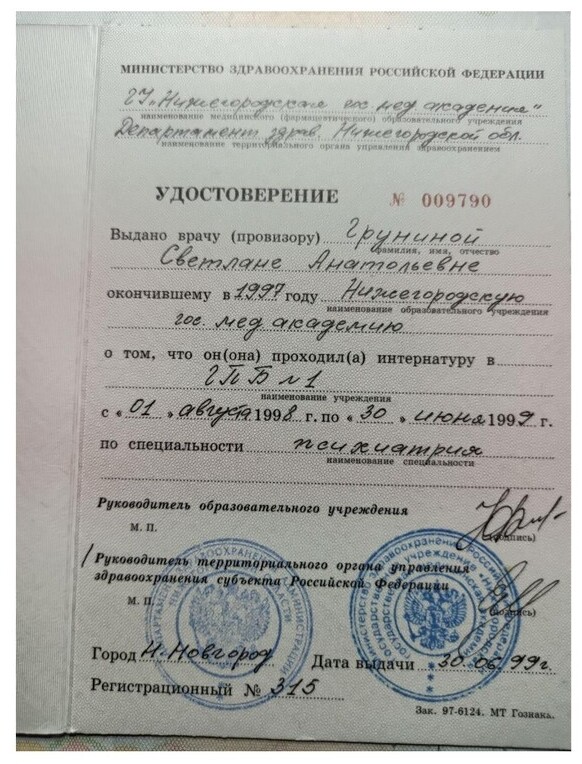 МИНИСТЕРСТВО ЗДРАВООХРАНЕНИЯ РОССИЙСКОЙ ФЕДЕРАЦИИ
ГУ "Нижегородская гос. мед академия"
наименование медицинского (фармацевтического) образовательного учреждения
Департамент здрав. Нижегородской обл.
наименование территориального органа управления здравоохранением
УДОСТОВЕРЕНИЕ № 009790
Выдано врачу (провизору) Груниной
фамилия, имя, отчество
Светлане Анатольевне
окончившему в 1997 году Нижегородскую
наименование образовательного учреждения
гос. мед академию
о том, что он(она) проходил(а) интернатуру в
ГПБ №1
наименование учреждения
с «01» августа 1998 г. по «30» июня 1999 г.
по специальности психиатрия
наименование специальности
Руководитель образовательного учреждения
М. П. (подпись)
Руководитель территориального органа управления
здравоохранения субъекта Российской Федерации
М. П. (подпись)
Город Н. Новгород Дата выдачи 30.06.99г.
Регистрационный № 315
Зак. 97-6124. МТ Гознака.